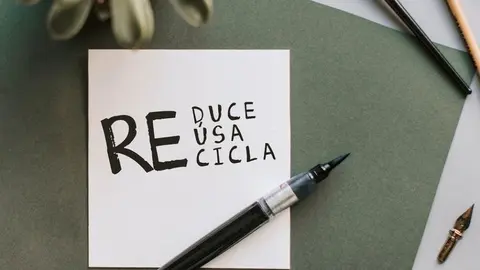 RE DUCE
ÚSA
CICLA